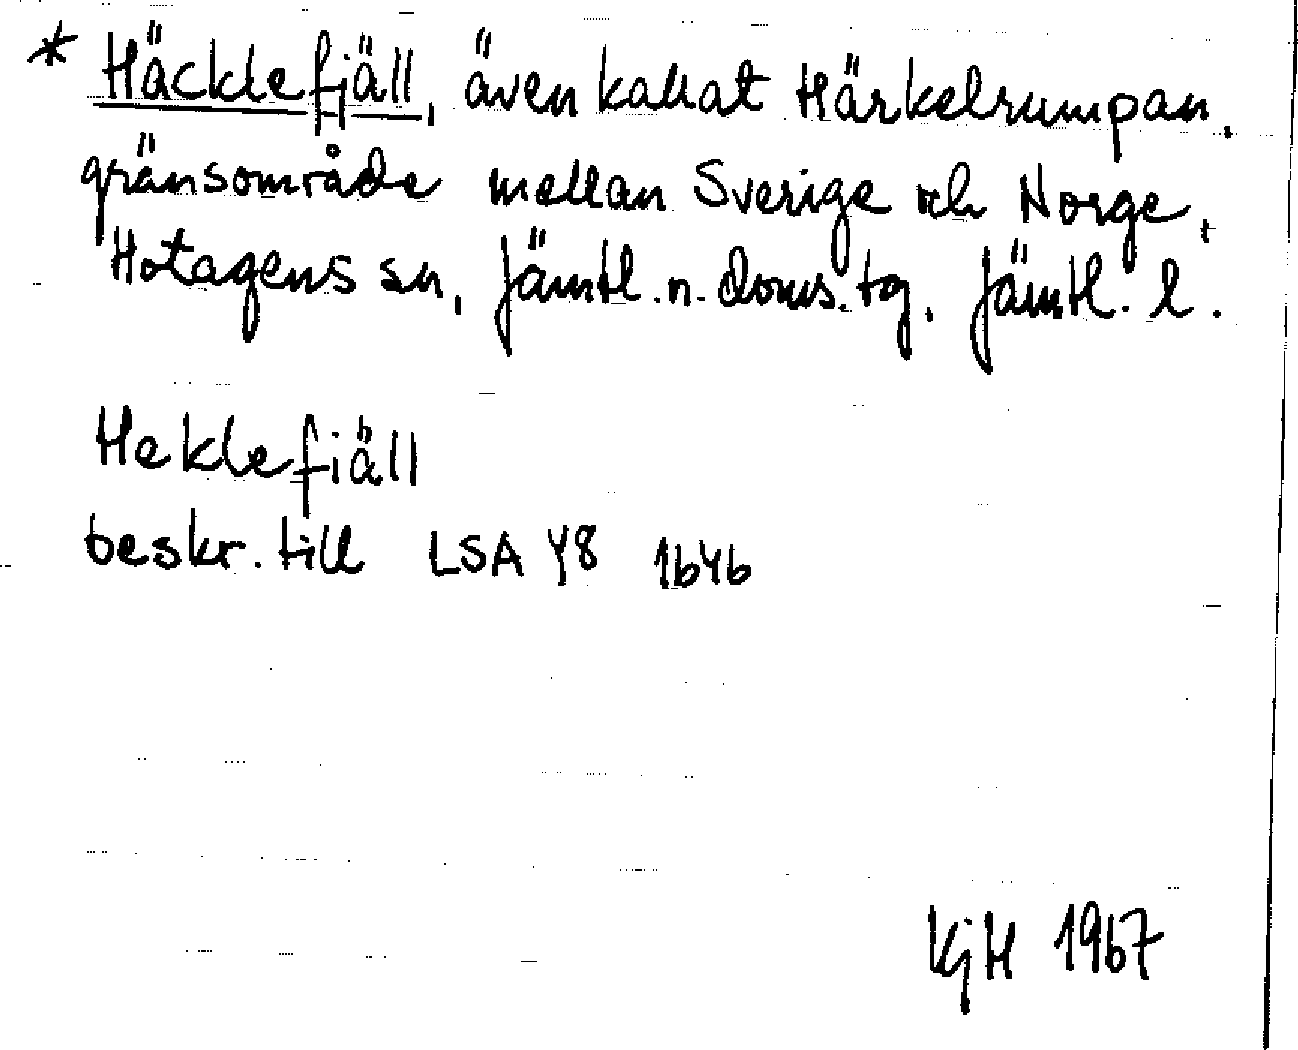 * Häcklefjäll, även kallat Härkelrumpan,
gränsområde mellan Sverige och Norge,
Hotagens sn, Jämtl. n. doms. tg, Jämtl. l.
Heklefiäll
beskr. till LSA Y8 1646
KjH 1967